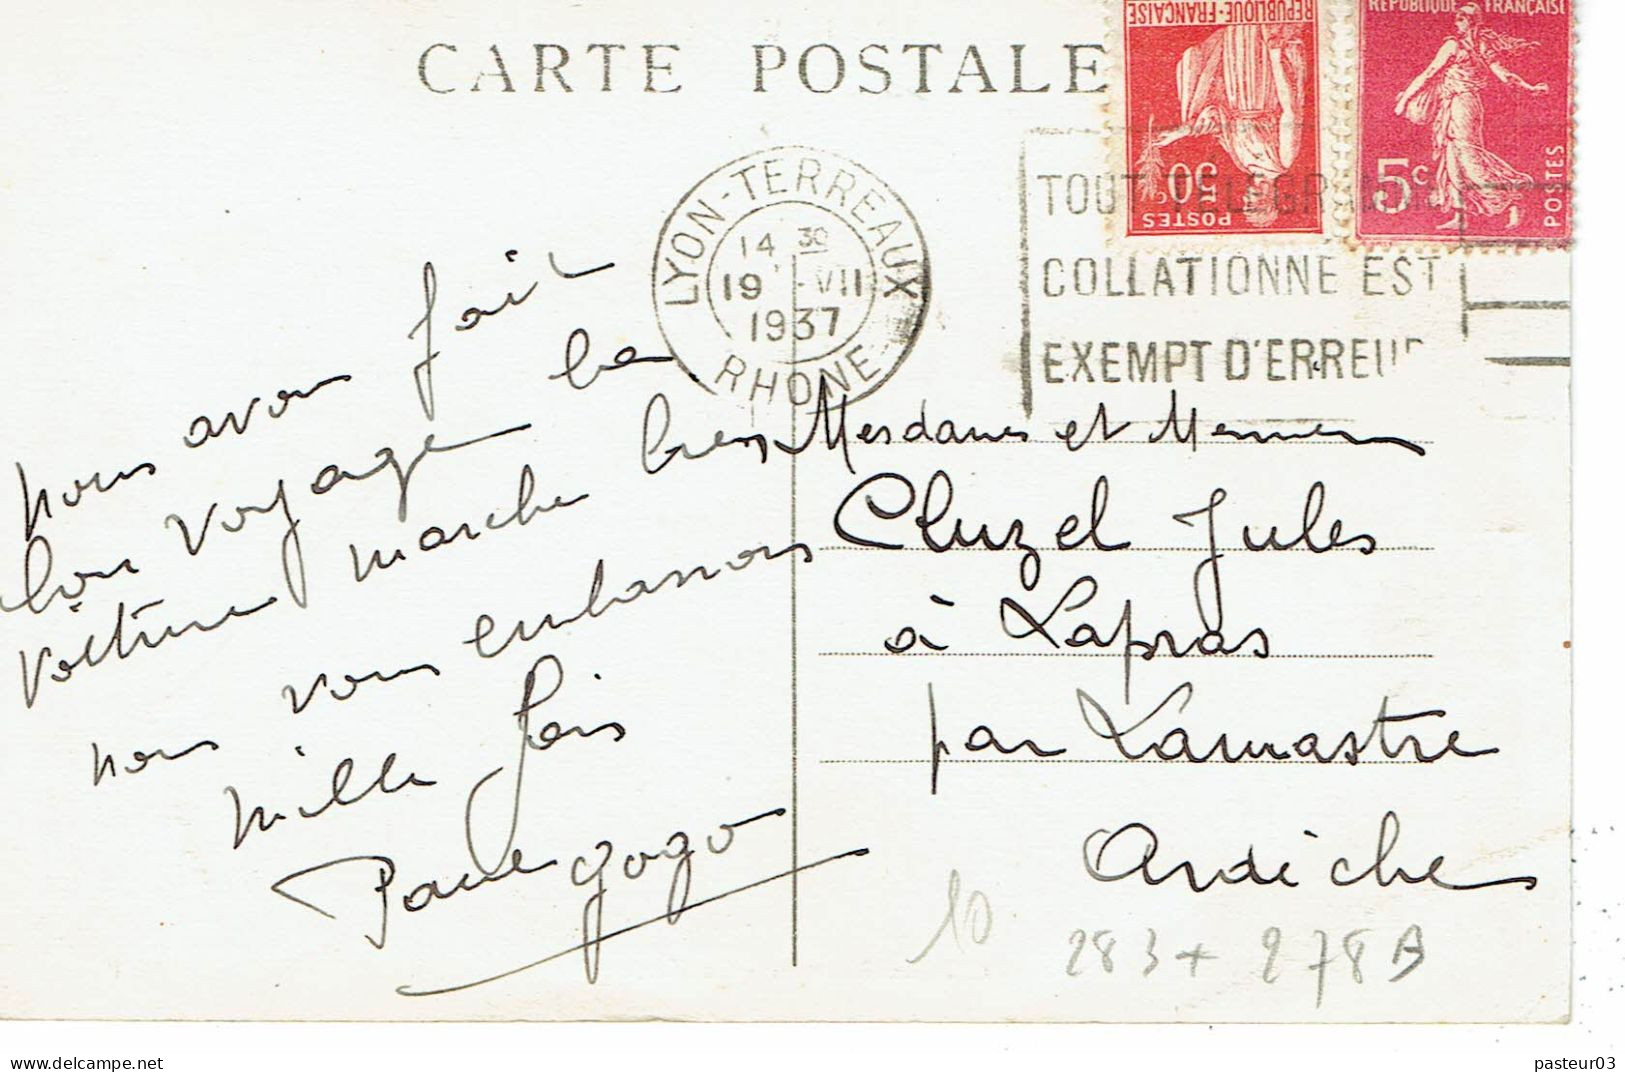 CARTE POSTALE
RÉPUBLIQUE-FRANÇAISE
50c
POSTES
RÉPUBLIQUE FRANÇAISE
5c
POSTES
LYON-TERREAUX
14 30
19 -VII
1937
RHONE
TOUT TELEGRAMME
COLLATIONNE EST
EXEMPT D'ERREUR
nous avons fait
bon voyage la
voiture marche bien
nous vous embrassons
mille fois
gogo
Mesdames et Messieurs
Cluzel Jules
à Lapras
par Lamastre
Ardèche
10
283 + 278B
www.delcampe.net
pasteur03